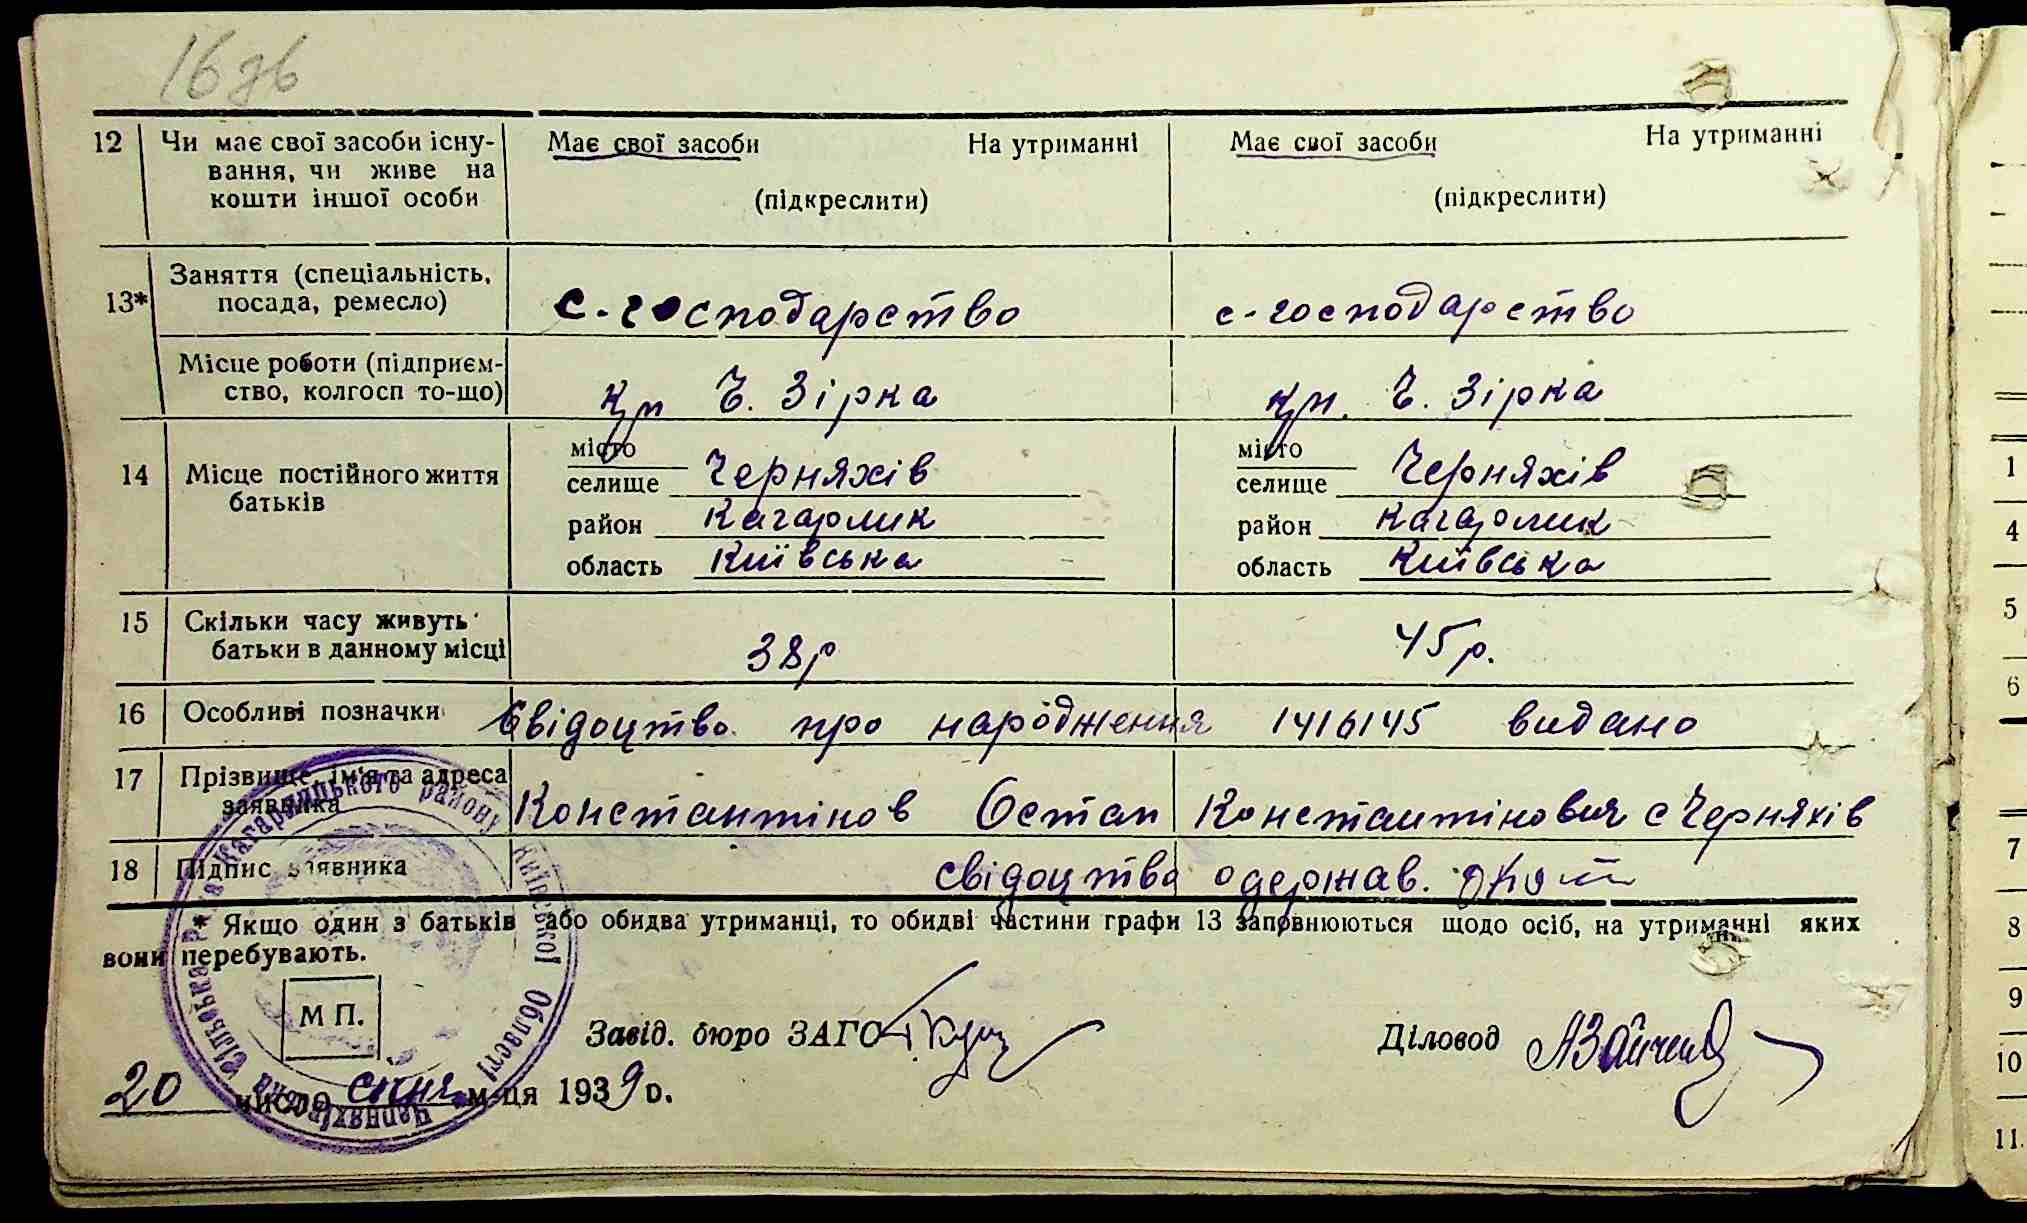 16 зв
12 Чи має свої засоби існу- Має свої засоби На утриманні Має свої засоби На утриманні
вання, чи живе на (підкреслити) (підкреслити)
кошти іншої особи
13* Заняття (спеціальність,
посада, ремесло) с.-господарство с-господарство
Місце роботи (підприєм-
ство, колгосп то-що) Ч. Зірка Ч. Зірка
14 Місце постійного життя
батьків
місто місто
селище Черняхів селище Черняхів
район Кагарлик район Кагарлик
область Київська область Київська
15 Скільки часу живуть
батьки в данному місці 38р 45р.
16 Особливі позначки Свідоцтво про народження 1416145 видано
17 Прізвище, ім'я та адреса
заявника Константінов Остап Константінович с Черняхів
18 Підпис заявника свідоцтво одержав.
* Якщо один з батьків або обидва утриманці, то обидві частини графи 13 заповнюються щодо осіб, на утриманні яких
вони перебувають.
М П.
Завід. бюро ЗАГС Діловод
20 число січня м-ця 1939 р.
Черняхівська Сільська Рада Кагарлицького району Київської Області
1
4
5
6
7
8
9
10
11.